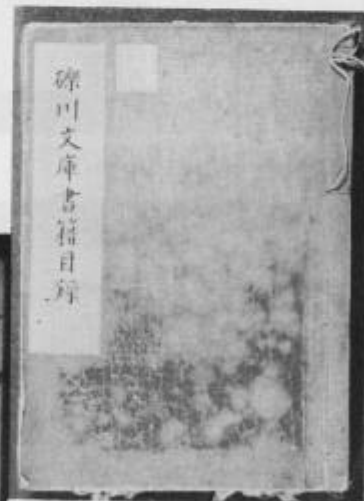 礫川文庫書籍目録